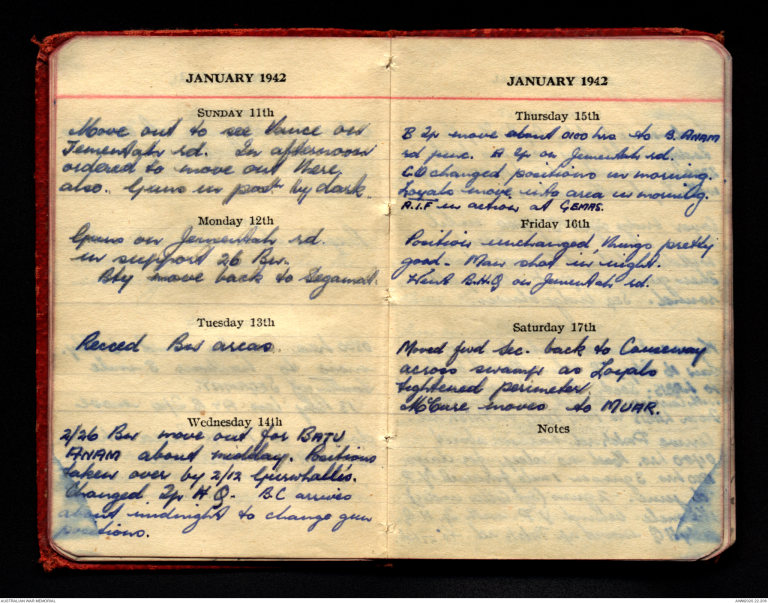 JANUARY 1942
SUNDAY 11th
Move out to see Vance on
Jementah rd. In afternoon
ordered to move out there
also. Guns in postn by dark.
Monday 12th
Guns on Jementah rd.
in support 26 Bn.
Bty move back to Segamat.
Tuesday 13th
Recced Bn areas.
Wednesday 14th
2/26 Bn move out for BATU
ANAM about midday. Positions
taken over by 2/12
Changed Tp H.Q. B.C arrives
about midnight to change gun
positions.
JANUARY 1942
Thursday 15th
B Tp move about 0100 hrs to B. ANAM
rd junc. A Tp on Jementah rd.
CO changed positions in morning.
Loyals move into area in morning.
A.I.F in action at GEMAS.
Friday 16th
Position unchanged, things pretty
good. Man shot in night.
Went B.H.Q on Jementah rd.
Saturday 17th
Moved fwd Sec. back to Causeway
across swamp as Loyals
tightened perimeter.
McClure moves to MUAR.
Notes
AUSTRALIAN WAR MEMORIAL